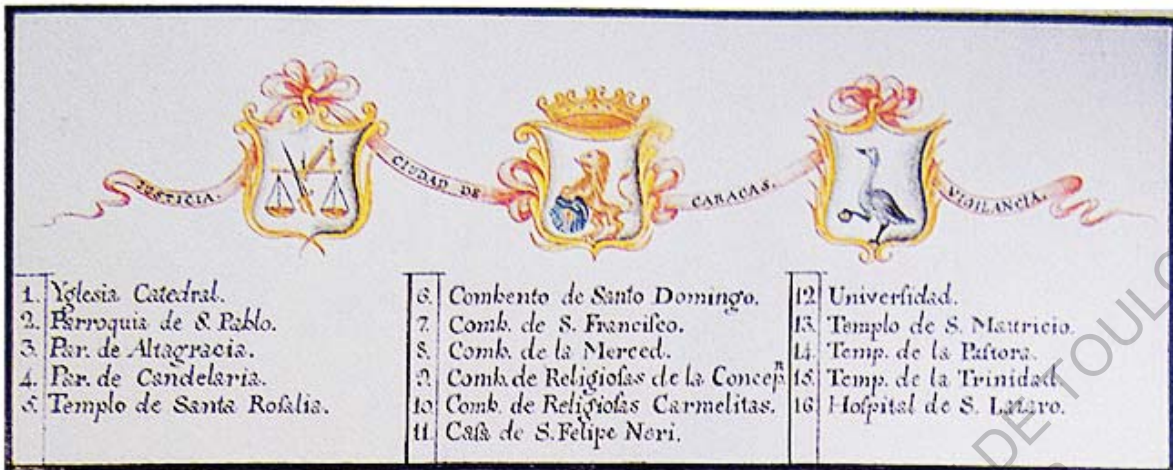 JUSTICIA.
CIUDAD DE
CARACAS.
VIGILANCIA.
1. Yglesia Catedral.
2. Parroquia de S. Pablo.
3. Par. de Altagracia.
4. Par. de Candelaria.
5. Templo de Santa Rosalia.
6. Combento de Santo Domingo.
7. Comb. de S. Francisco.
8. Comb. de la Merced.
9. Comb. de Religiosas de la Concepn
10. Comb. de Religiosas Carmelitas.
11. Casa de S. Felipe Neri.
12 Universidad.
13. Templo de S. Mauricio.
14. Temp. de la Pastora.
15. Temp. de la Trinidad.
16 Hospital de S. Lazaro.
DE TOULO